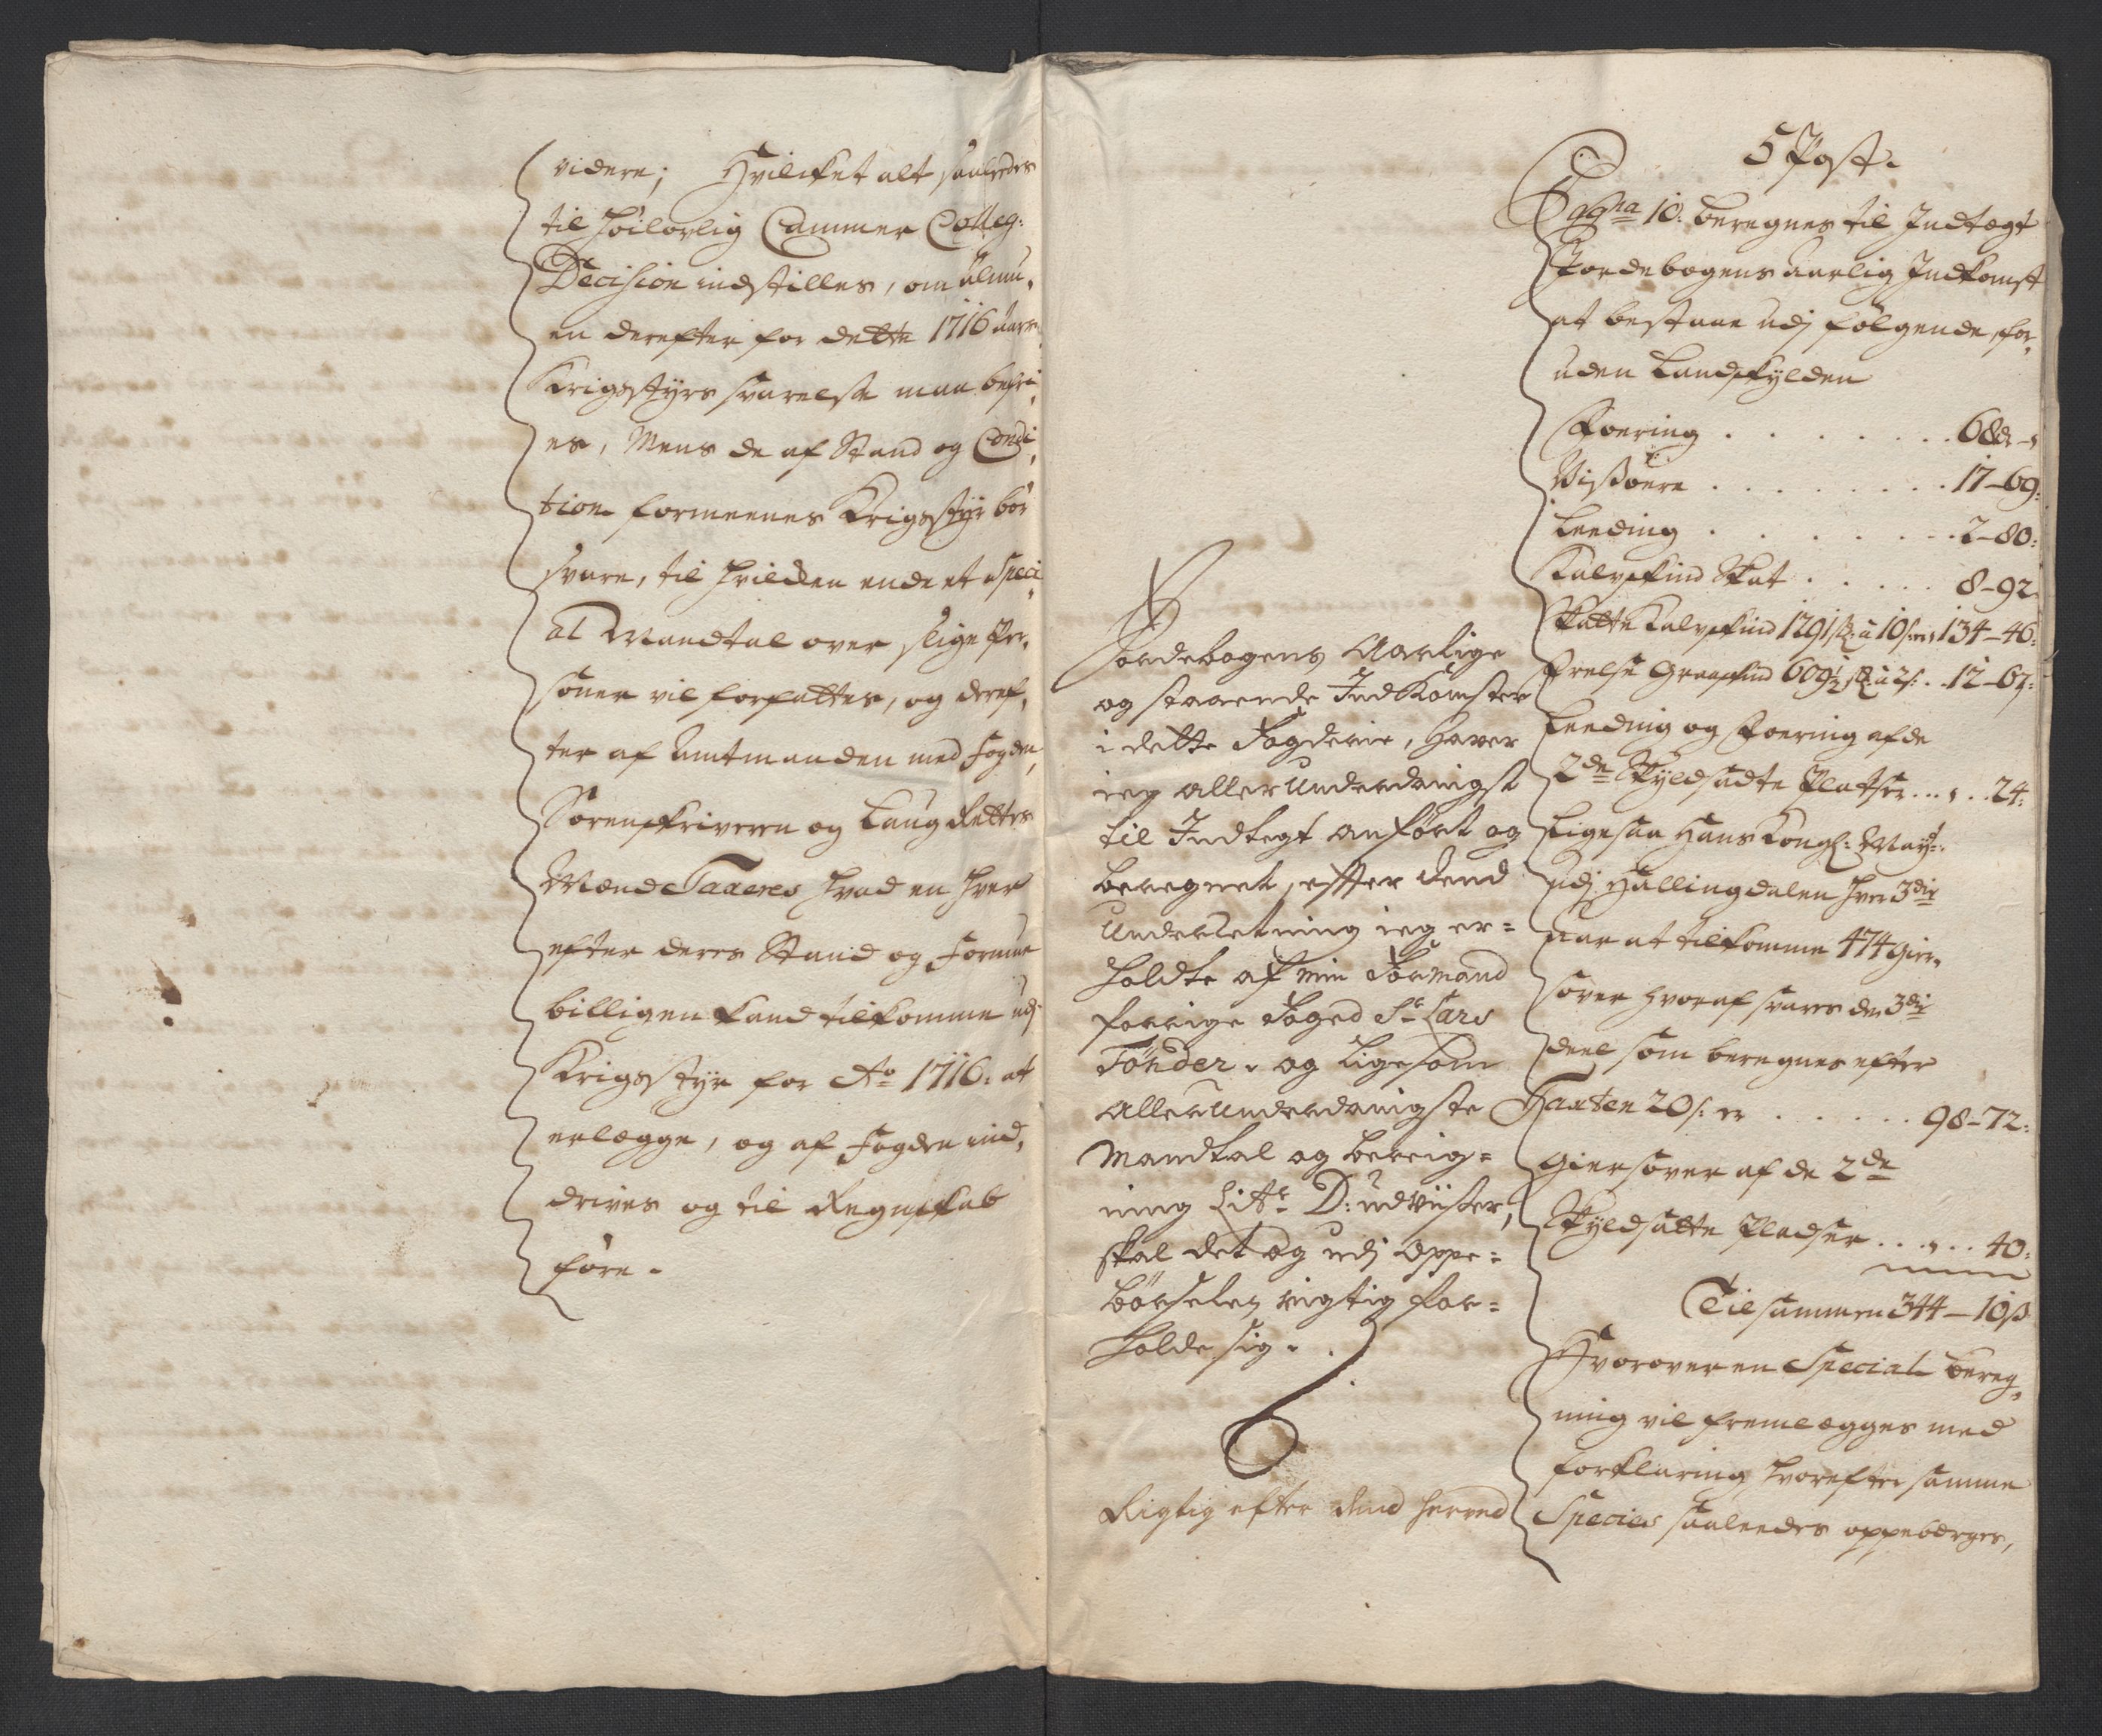 videre; Hvilcket alt saaledes
til høilovlig Cammer Colleg:
Decision indstilles, om almu,
en derefter for dette 1716 aars
Krigsstyrs svarelse maa befri,
es, Mens de af Stand og Condi,
tion formeenes Krigsstyr bør
svare, til hvilcken ende et Speci,
al Mandtal over slige Per,
soner vil forfattes, og deref,
ter af Amtmanden med Fogden,
Sorenskriveren og Laug Rettes
Mænd Taxeres hvad en hver
efter deres Stand og Formue
billigen kand tilkomme udj
Krigsstyr for Ao 1716: at
erlægge, og af Fogden ind,
drives og til Regnskab
føre.
Jordebogens Aarlige
og staaende Indkomster
i dette Fogderie, haver
ieg allerunderdanigst
til Indtegt anført og
beregnet, effter dend
underretning ieg er=
holdte af min Formand
forrige Foged Sr Lars
Tønder. og ligesom
allerunderdanigste
Mandtal og bereig=
ning Litr D: udviiser,
skal det og udj Oppe=
børselen rigtig for=
holde sig.
Rigtig efter dend herved
5 Post.
Pagna 10: beregnes til Indtægt
Jordebogens Aarlig Indkomst
at bestaae udj følgende, for,
uden Landskylden
Foering . . . . . . . 68 d –
Visøere . . . . . . . . 17–69:
Leeding . . . . . . . 2–80:
Kalvskind Skat . . . . . 8–92
Skatte Kalvskind 1291 st: a 10 s: er 134–46:
Frelse Graaskind 609½ st: a 2 s: . . 12–67:
Leeding og Foering af de
2de Skyldsadte Pladser . . . . 24:
Ligesaa Hans Kongl: Mayts:
udj Hallingdalen hver 3die
aar at tilkomme 474 gier,
søver hvoraf svares den 3die
deel som beregnes efter
Taxten 20 s: er . . . . . 98–72:
Giersøver af de 2de
Skyldsatte Pladser . . . . 40:
Tilsammen 344–10 s
Hvorover en Special bereg,
ning vil fremlægges med
forklaring hvorefter samme
Species saaleedes oppebærges,